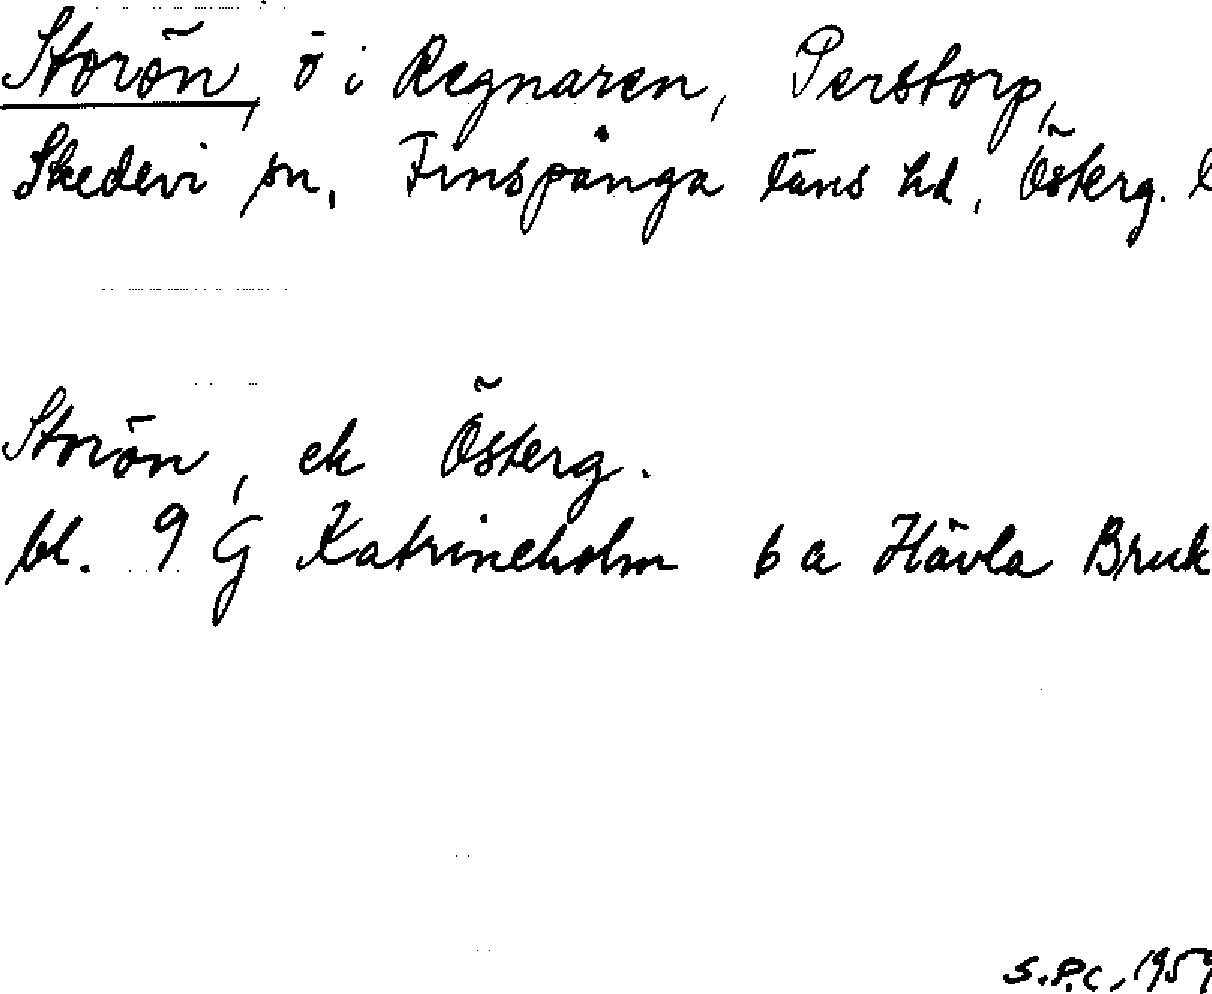 Storön, ö i Regnaren, Perstorp,
Skedevi sn, Finspånga läns hd, Österg. l
Storön, ek Österg.
bl. 9 G Katrineholm 6 a Hävla Bruk
S.P.C, 1959